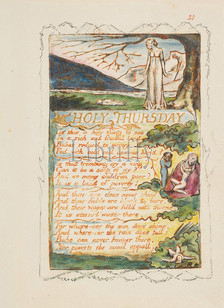 HOLY THURSDAY
Is this a holy thing to see,
In a rich and fruitful land,
Babes reducd to misery,
Fed with cold and
Is that trembling cry a song?
Can it be a song of joy?
And so many children poor?
It is a land of poverty!
And their sun does never shine.
And their fields are bleak & bare.
And their ways are fill'd with thorns
It is eternal winter there.
For where-e'er the sun does shine,
And where-e'er the rain does fall:
Babe can never hunger there,
Nor poverty the mind appall.